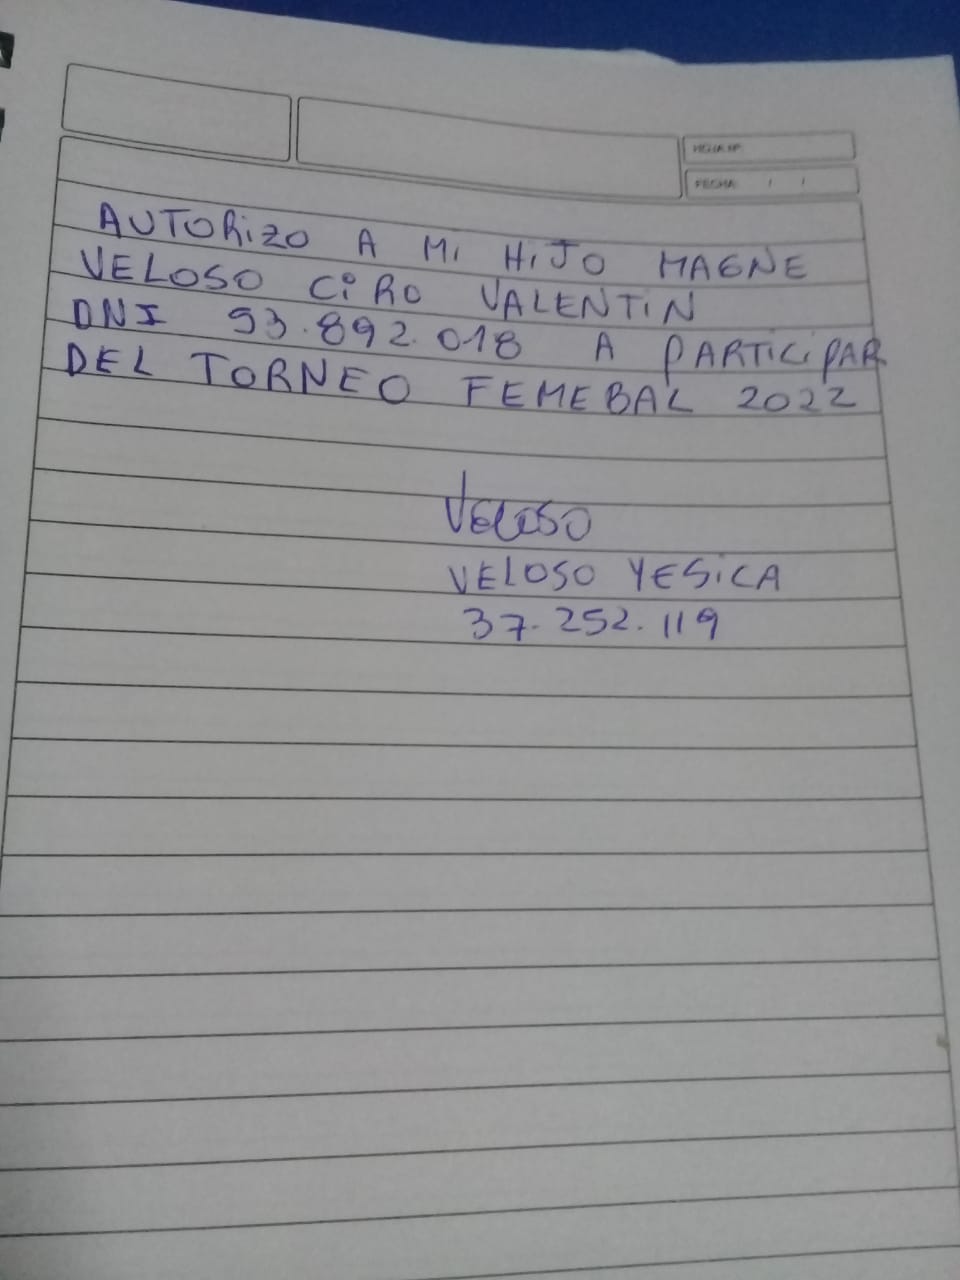 HOJA Nº
FECHA / /
AUTORIZO A MI HIJO MAGNE
VELOSO CIRO VALENTIN
DNI 53.892.018 A PARTICIPAR
DEL TORNEO FEMEBAL 2022
Veloso
VELOSO YESICA
37.252.119